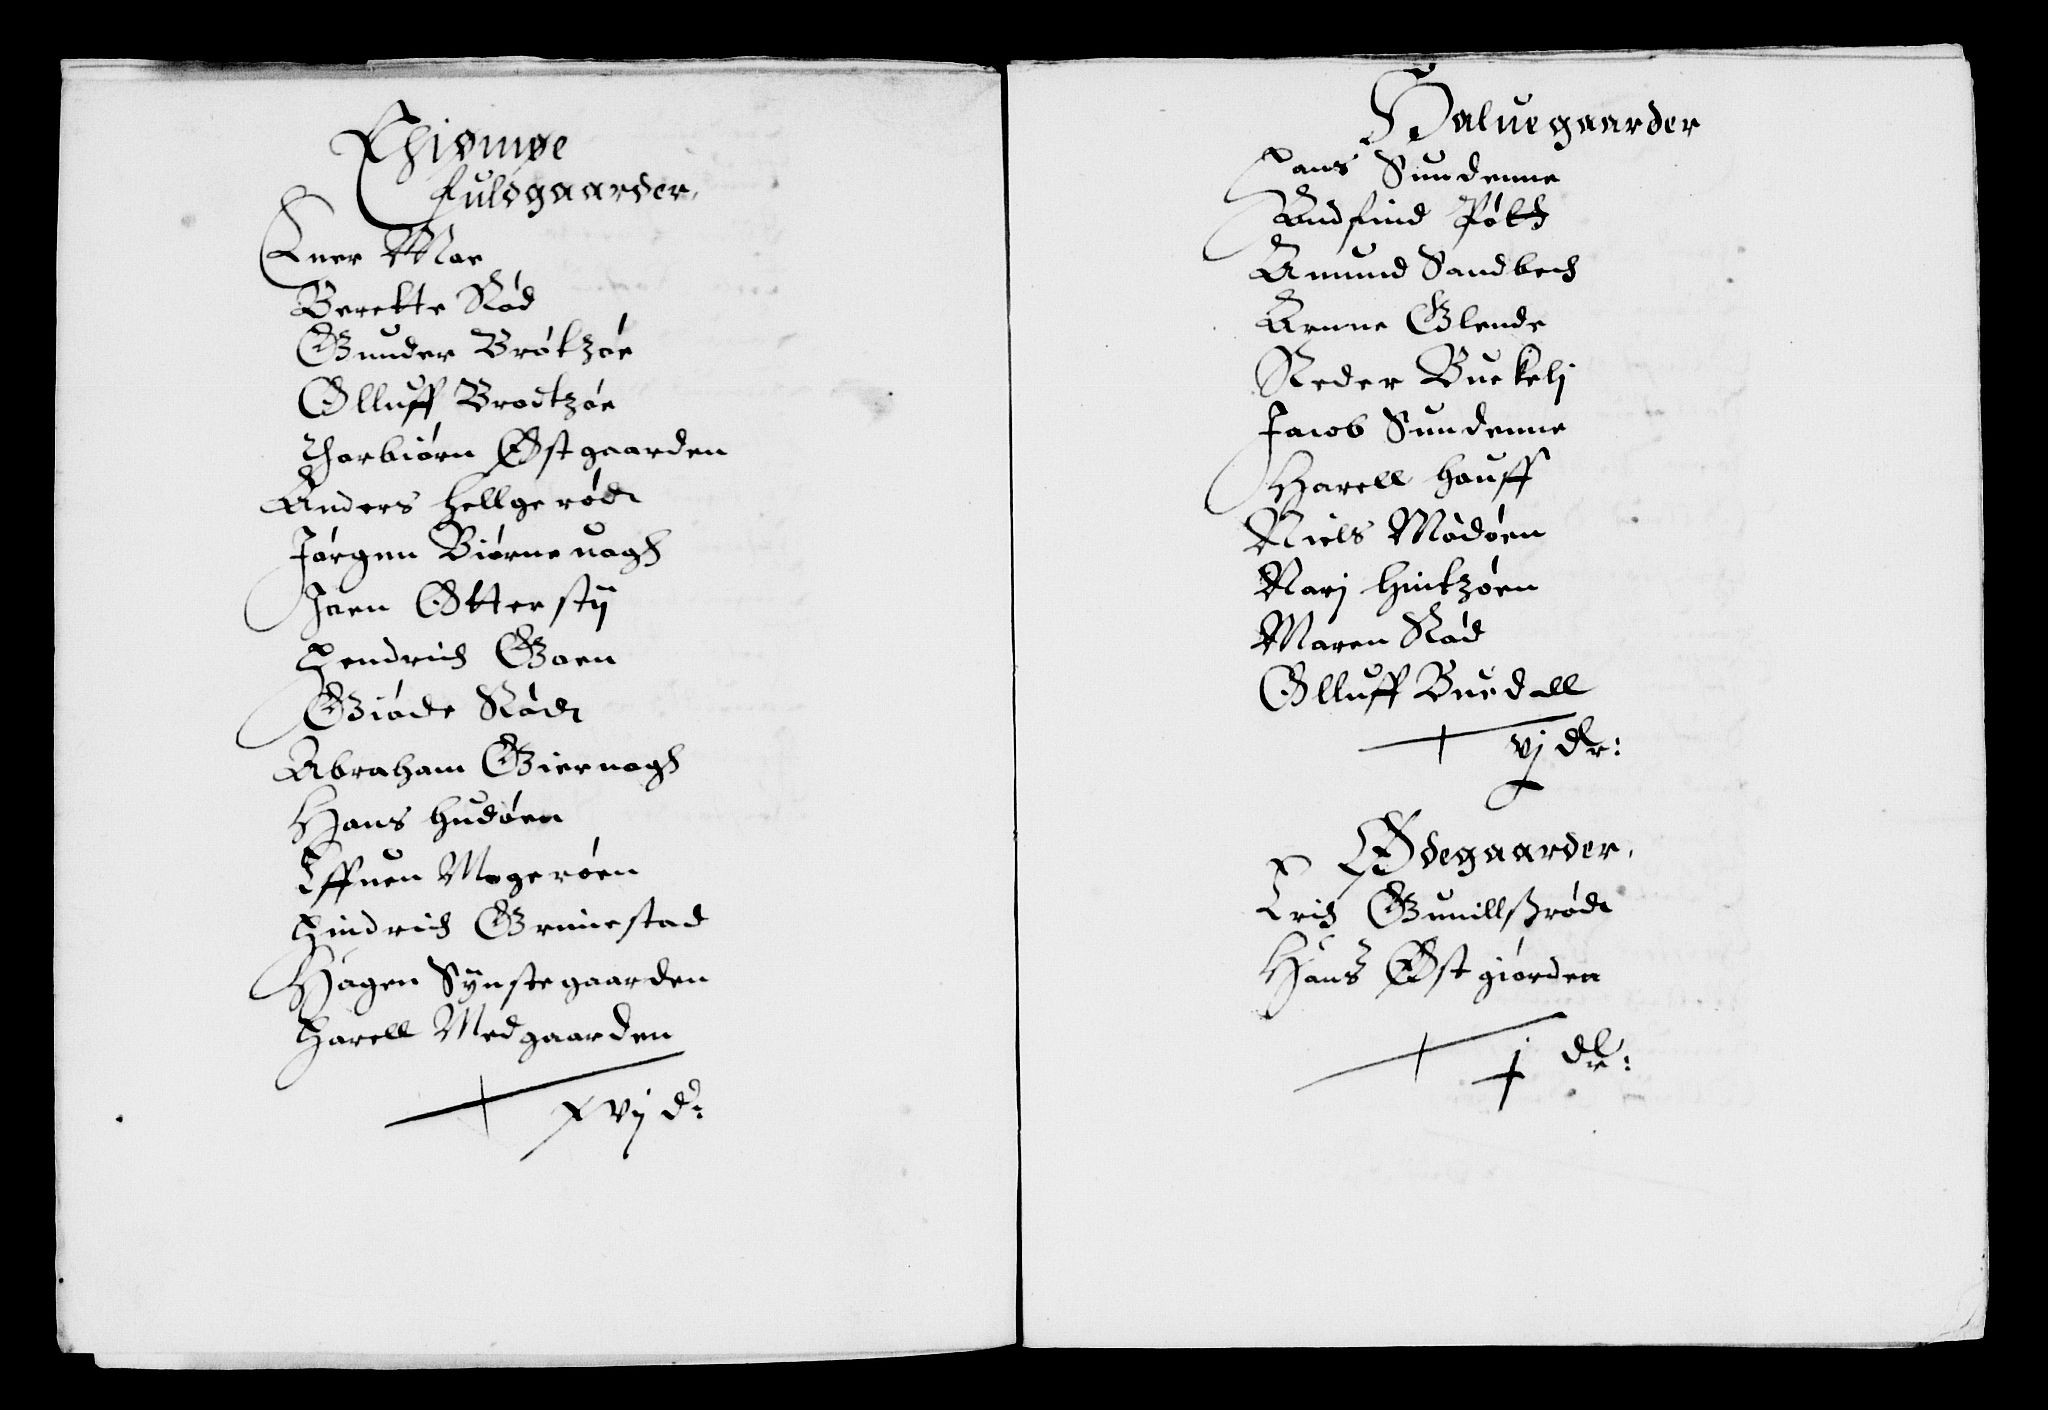 Thiømøe
Fuldgaarder,
Euer Moe
Berette Rød
Gunder Brøtzøe
Olluff Brøtzøe
Thorbiørn Østgaarden
Anders Hellgerødt
Jørgen Biørneuogh
Joen Otterstij
Hendrich Goen
Giøde Rødt
Abraham Gieruogh
Hans Hudøen
Effuen Magerøen
Hindrich Grimestad
Hågen Synstegaarden
Harell Medgaarden
xvj dr
Haluegaarder
Hans Sundenne
Andfind Røth
Amund Sandbech
Arnne Glende
Reder Buekelj
Jacob Sundenne
Harell Houff
Niels Mødøen
Narj Hintzøen
Maren Rød
Olluff Buedall
vj dlr:
Ødegaarder,
Erich Gunillsrødt
Hans Østgiorden
j dlr: